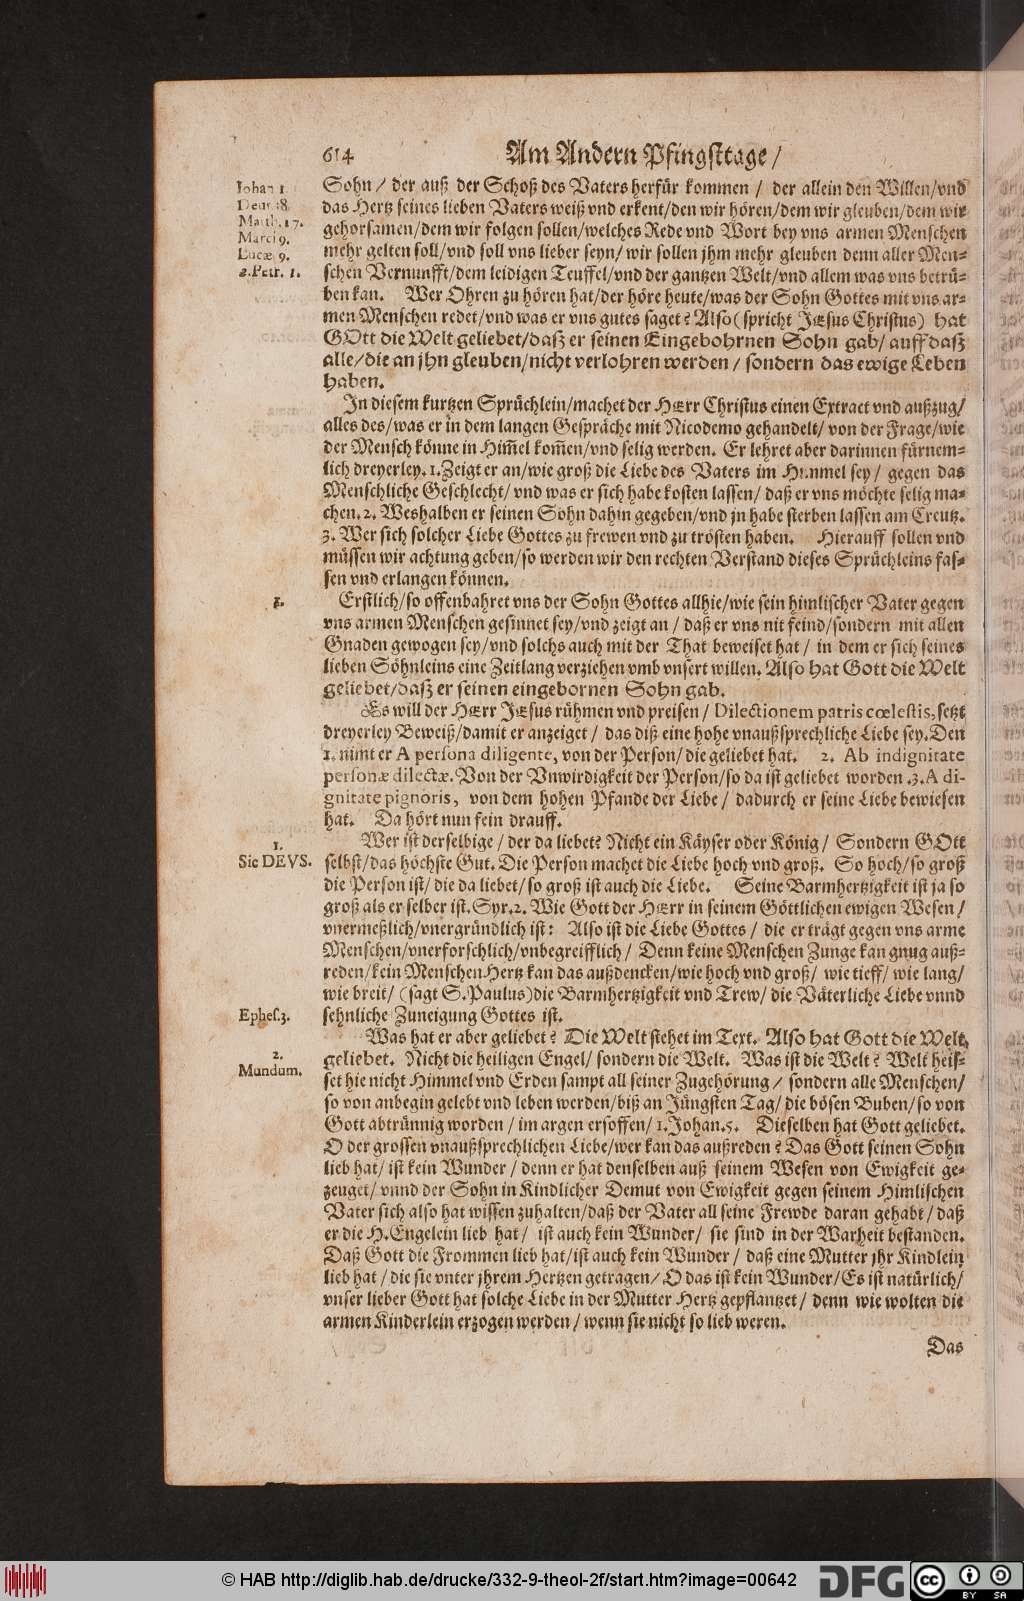 614 Am Andern Pfingsttage /
Johan 1.
Deut. 18.
Matth. 17.
Marci 9.
Lucæ 9.
2. Petr. 1.
Sohn / der auß der Schoß des Vaters herfür kommen / der allein den Willen/vnd
das Hertz seines lieben Vaters weiß vnd erkent/den wir hören/dem wir gleuben/dem wir
gehorsamen/dem wir folgen sollen/welches Rede vnd Wort bey vns armen Menschen
mehr gelten soll/vnd soll vns lieber seyn/ wir sollen jhm mehr gleuben denn aller Men-
schen Vernunfft/dem leidigen Teuffel/vnd der gantzen Welt/vnd allem was vns betrü-
ben kan. Wer Ohren zu hören hat/der höre heute/was der Sohn Gottes mit vns ar-
men Menschen redet/vnd was er vns gutes saget? Also (spricht JEsus Christus) hat
GOtt die Welt geliebet/daß er seinen Eingebohrnen Sohn gab/ auff daß
alle/die an jhn gleuben/nicht verlohren werden / sondern das ewige Leben
haben.
In diesem kurtzen Sprüchlein/machet der HErr Christus einen Extract vnd außzug/
alles des/was er in dem langen Gespräche mit Nicodemo gehandelt/ von der Frage/wie
der Mensch könne in Him̅el kom̅en/vnd selig werden. Er lehret aber darinnen fürnem-
lich dreyerley. 1. Zeigt er an/wie groß die Liebe des Vaters im Himmel sey / gegen das
Menschliche Geschlecht/ vnd was er sich habe kosten lassen/ daß er vns möchte selig ma-
chen. 2. Weshalben er seinen Sohn dahin gegeben/vnd jn habe sterben lassen am Creutz.
3. Wer sich solcher Liebe Gottes zu frewen vnd zu trösten haben. Hierauff sollen vnd
müssen wir achtung geben/so werden wir den rechten Verstand dieses Sprüchleins fas-
sen vnd erlangen können.
1.
Erstlich/so offenbahret vns der Sohn Gottes allhie/wie sein himlischer Vater gegen
vns armen Menschen gesinnet sey/vnd zeigt an / daß er vns nit feind/sondern mit allen
Gnaden gewogen sey/vnd solchs auch mit der That beweiset hat / in dem er sich seines
lieben Söhnleins eine Zeitlang verziehen vmb vnsert willen. Also hat Gott die Welt
geliebet/daß er seinen eingebornen Sohn gab.
Es will der HErr JEsus rühmen vnd preisen / Dilectionem patris cœlestis, setzt
dreyerley Beweiß/damit er anzeiget / das diß eine hohe vnaußsprechliche Liebe sey. Den
1. nimt er A persona diligente, von der Person/ die geliebet hat. 2. Ab indignitate
personæ dilectæ. Von der Vnwirdigkeit der Person/so da ist geliebet worden. 3. A di-
gnitate pignoris, von dem hohen Pfande der Liebe / dadurch er seine Liebe bewiesen
hat. Da hört nun fein drauff.
1.
Sic DEVS.
Wer ist derselbige / der da liebet? Nicht ein Käyser oder König / Sondern GOtt
selbst/das höchste Gut. Die Person machet die Liebe hoch vnd groß. So hoch/so groß
die Person ist/ die da liebet/so groß ist auch die Liebe. Seine Barmhertzigkeit ist ja so
groß als er selber ist. Syr. 2. Wie Gott der HErr in seinem Göttlichen ewigen Wesen /
vnermeßlich/vnergründlich ist: Also ist die Liebe Gottes / die er trägt gegen vns arme
Menschen/vnerforschlich/vnbegreifflich / Denn keine Menschen Zunge kan gnug auß-
reden/kein Menschen Hertz kan das außdencken/wie hoch vnd groß/ wie tieff/ wie lang/
wie breit/ (sagt S. Paulus) die Barmhertzigkeit vnd Trew/ die Väterliche Liebe vnnd
Ephes. 3.
sehnliche Zuneigung Gottes ist.
2.
Mundum.
Was hat er aber geliebet? Die Welt stehet im Text. Also hat Gott die Welt
geliebet. Nicht die heiligen Engel/ sondern die Welt. Was ist die Welt? Welt heis-
set hie nicht Himmel vnd Erden sampt all seiner Zugehörung / sondern alle Menschen/
so von anbegin gelebt vnd leben werden/biß an Jüngsten Tag/ die bösen Buben/so von
Gott abtrünnig worden / im argen ersoffen/ 1. Johan. 5. Dieselben hat Gott geliebet.
O der grossen vnaußsprechlichen Liebe/wer kan das außreden? Das Gott seinen Sohn
lieb hat/ ist kein Wunder / denn er hat denselben auß seinem Wesen von Ewigkeit ge-
zeuget/ vnnd der Sohn in Kindlicher Demut von Ewigkeit gegen seinem Himlischen
Vater sich also hat wissen zuhalten/daß der Vater all seine Frewde daran gehabt / daß
er die H. Engelein lieb hat / ist auch kein Wunder/ sie sind in der Warheit bestanden.
Daß Gott die Frommen lieb hat/ist auch kein Wunder / daß eine Mutter jhr Kindlein
lieb hat / die sie vnter jhrem Hertzen getragen/ O das ist kein Wunder/Es ist natürlich/
vnser lieber Gott hat solche Liebe in der Mutter Hertz gepflantzet / denn wie wolten die
armen Kinderlein erzogen werden / wenn sie nicht so lieb weren.
Das
© HAB http://diglib.hab.de/drucke/332-9-theol-2f/start.htm?image=00642
DFG
cc BY SA